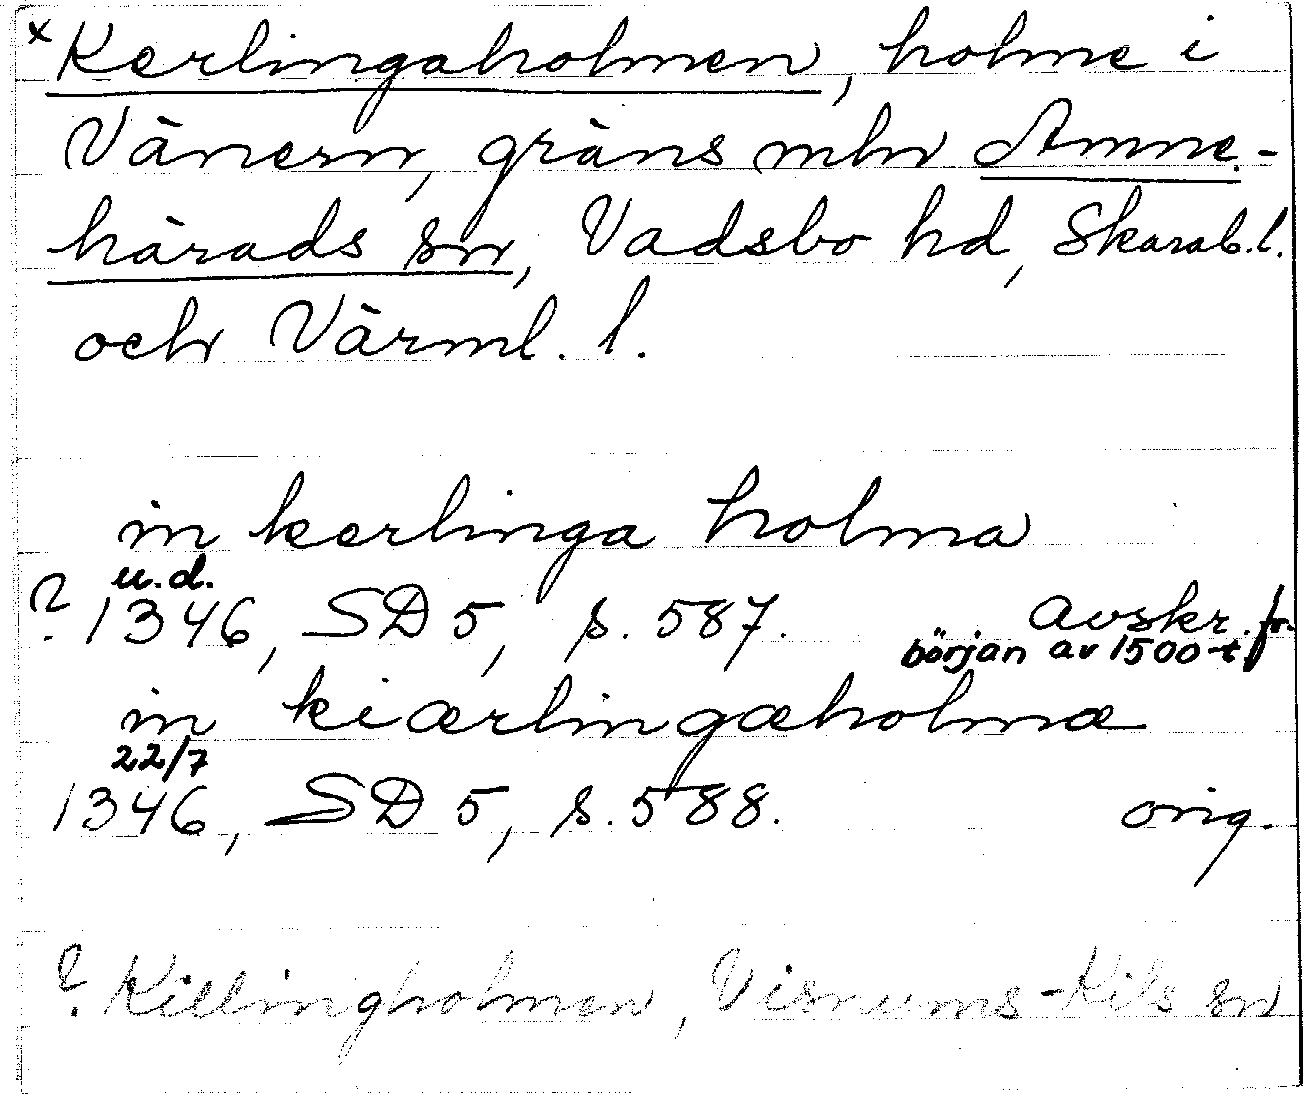 x Kerlingaholmen, holme i
Vänern, gräns mln Amne-
härads sn, Vadsbo hd, Skarab.l.
och Värml. l.
in kerlinga holma
u.d.
? 1346, SD 5, s. 587. Avskr. fr.
början av 1500-t
in kiærlingæholmæ
22/7
1346, SD 5, s. 588. orig.
? Killingholmen, Visnums-Kils sn